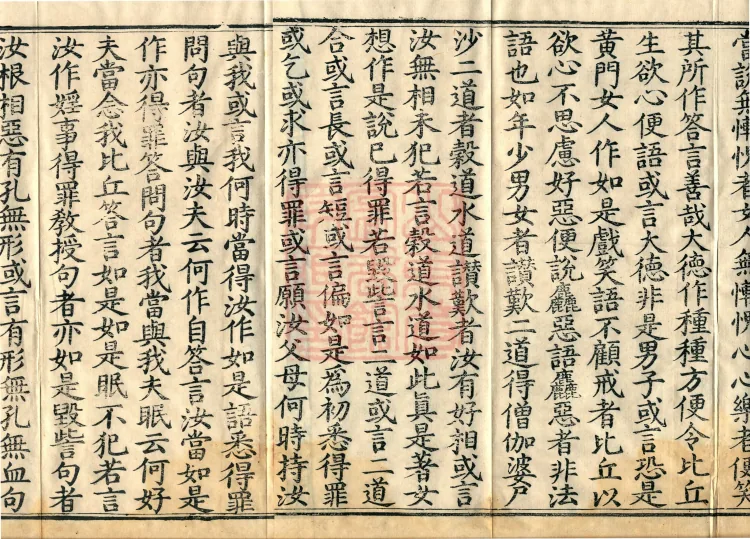 當說無慚愧者女人無慚愧心心樂者便笑
其所作答言善哉大德作種種方便令比丘
生欲心便語或言大德非是男子或言恐是
黃門女人作如是戲笑語不顧戒者比丘以
欲心不思慮好惡便說麤惡語麤惡者非法
語也如年少男女者讚歎二道得僧伽婆尸
沙二道者穀道水道讚歎者汝有好相或言
汝無相未犯若言穀道水道如此真是著女
想作是說已得罪若毀呰言二道或言二道
合或言長或言短或言偏如是為初悉得罪
或乞或求亦得罪或言願汝父母何時持汝
與我或言我何時當得汝作如是語悉得罪
問句者汝與汝夫云何作自答言汝當如是
作亦得罪答問句者我當與我夫眠云何好
夫當念我比丘答言如是如是眠不犯若言
汝作婬事得罪教授句者亦如是毀呰句者
汝根相惡有孔無形或言有形無孔無血句